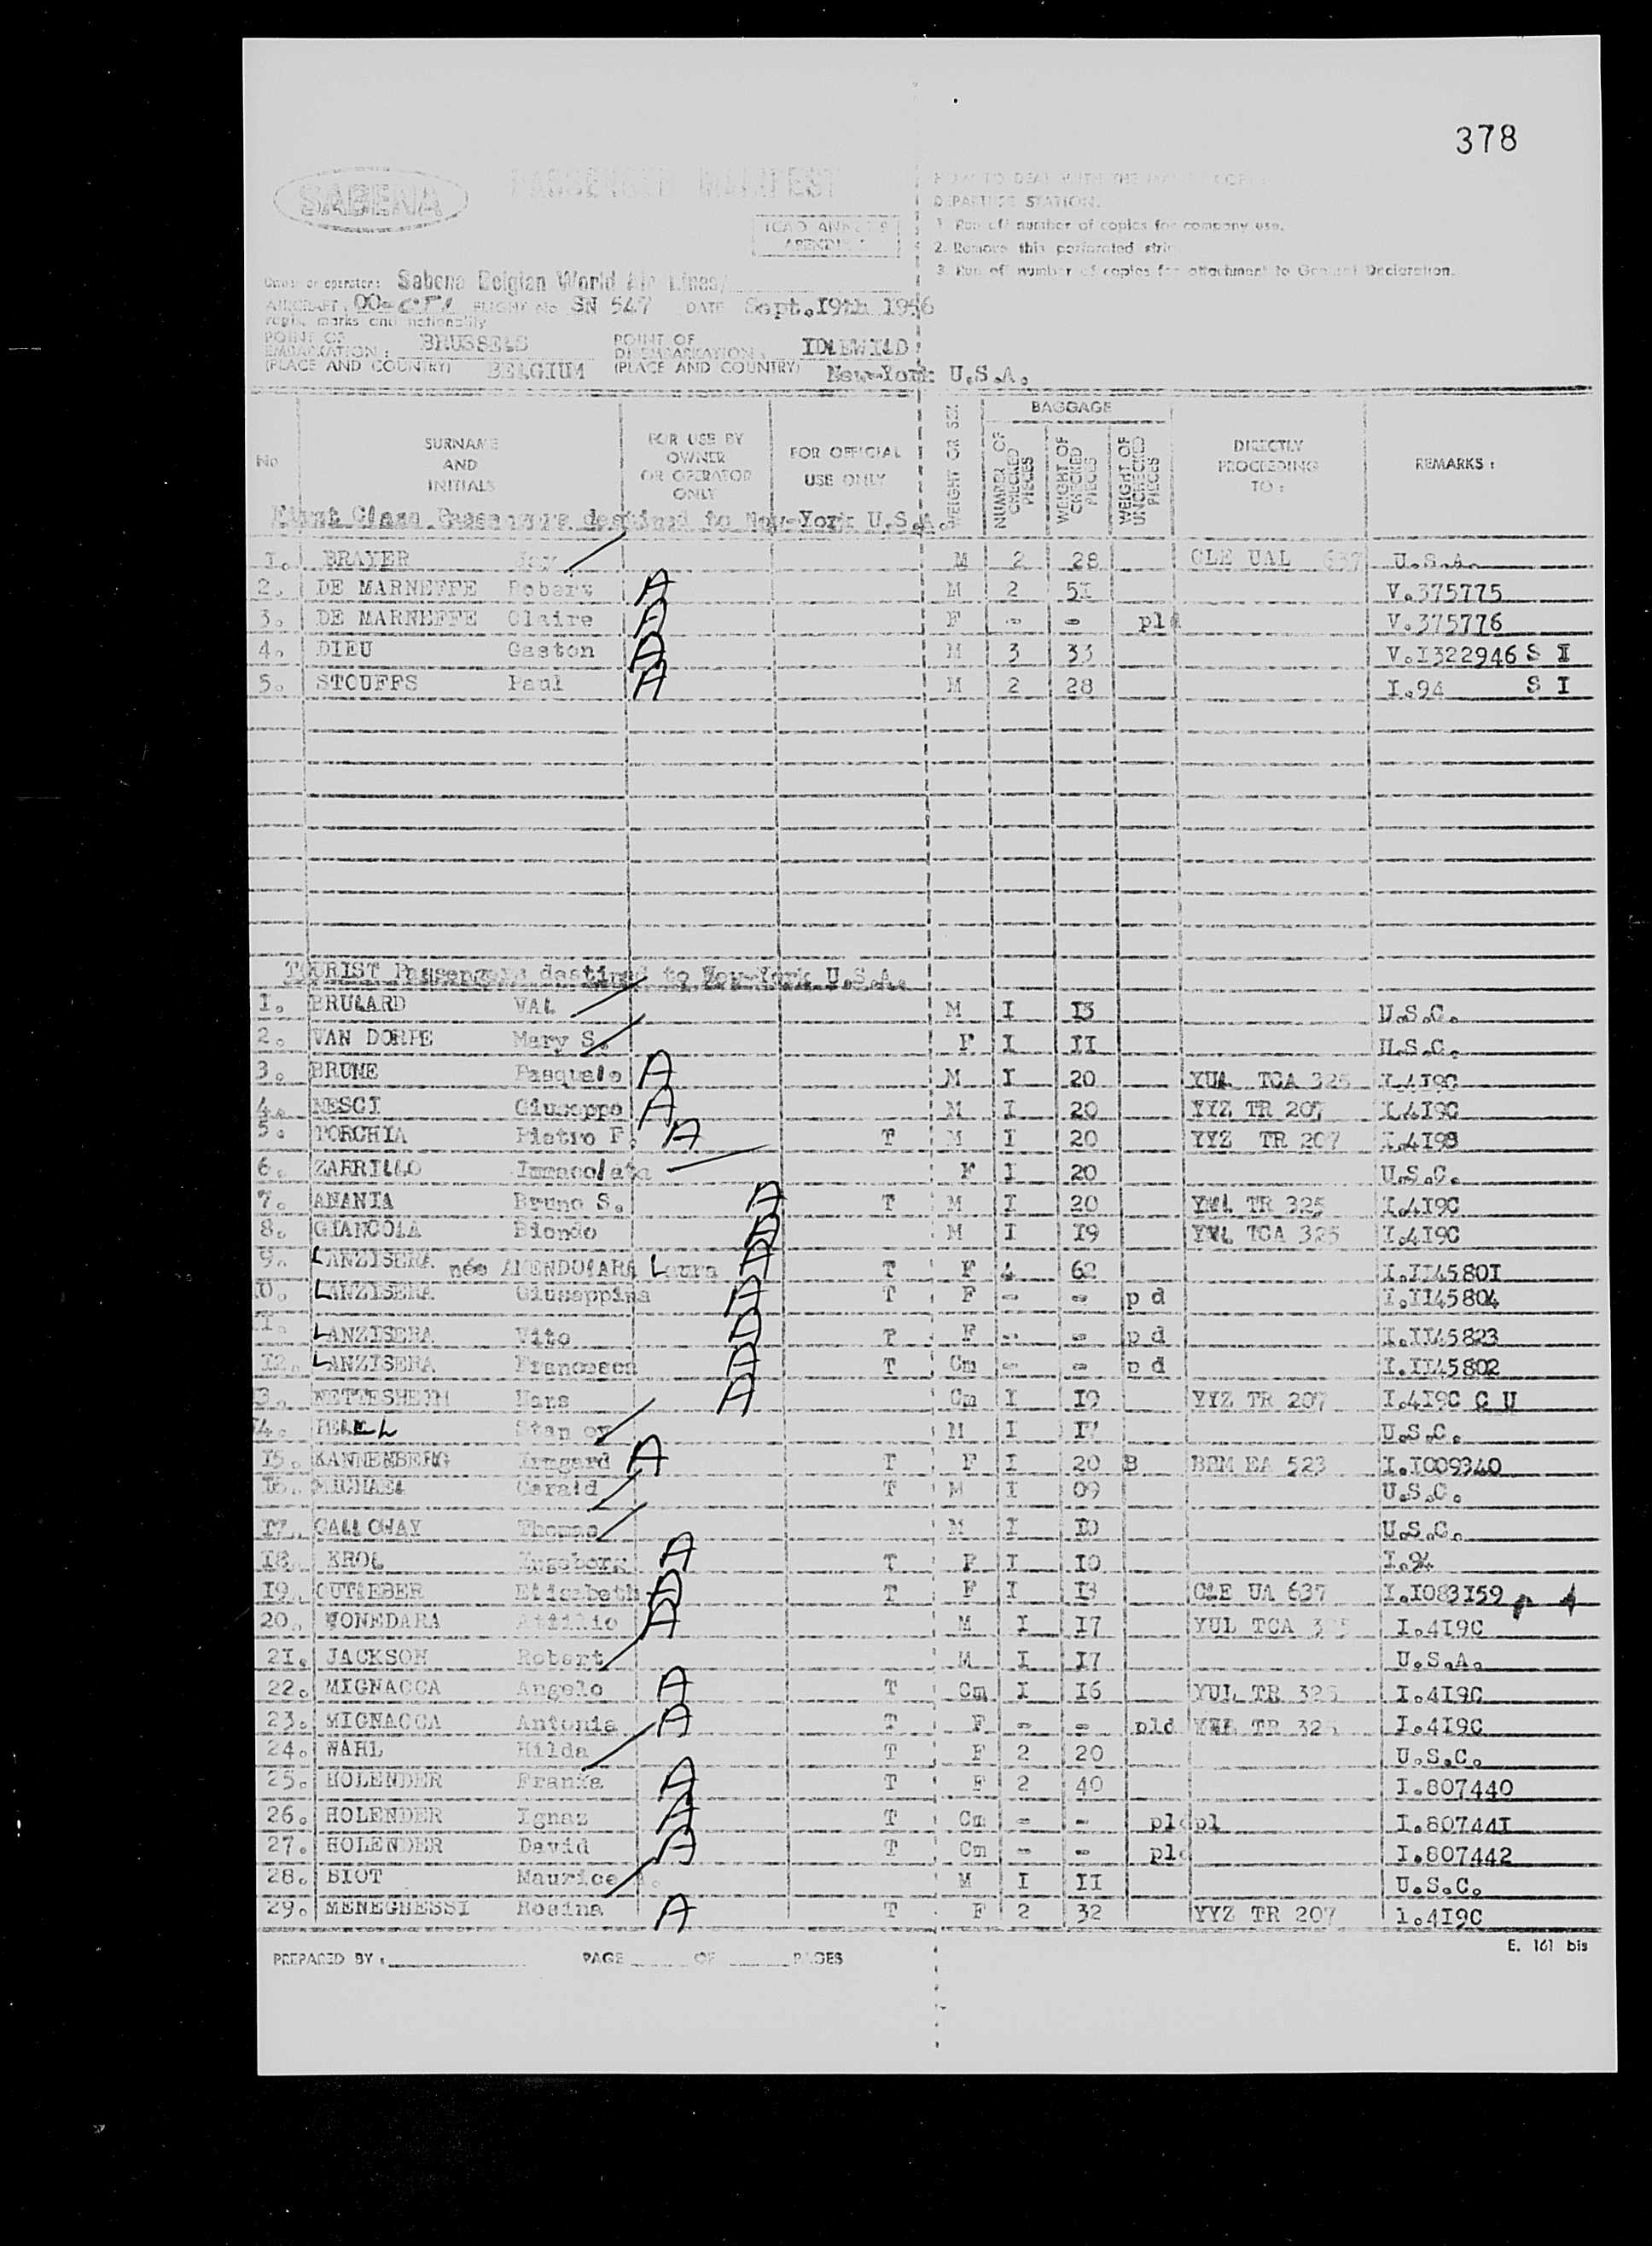 378
SABENA
PASSENGER MANIFEST
ICAO ANNEX 9
HOW TO DEAL WITH THE
DEPARTURE STATION.
1. Run off number of copies for company use.
2. Remove this perforated strip
3. Run off number of copies for attachment to General Declaration.
Owner or operator: Sabena Belgian World Air Lines
AIRCRAFT: FLIGHT No SN 547 DATE Sept.I9th 1956
regis. marks and nationality
POINT OF EMBARKATION: BRUSSELS POINT OF DISEMBARKATION: IDLEWILD
(PLACE AND COUNTRY) BELGIUM (PLACE AND COUNTRY) New-York U.S.A.
No SURNAME AND INITIALS FOR USE BY OWNER OR OPERATOR ONLY FOR OFFICIAL USE ONLY WEIGHT OR SEX BAGGAGE NUMBER OF CHECKED PIECES WEIGHT OF CHECKED PIECES WEIGHT OF UNCHECKED PIECES DIRECTLY PROCEEDING TO: REMARKS:
First Class Passengers destined to New-York U.S.A.
1. BRAYER M 2 28 CLE UAL 637 U.S.A.
2. DE MARNEFFE Robert A M 2 5I V.375775
3. DE MARNEFFE Claire A F - - pld V.375776
4. DIEU Gaston A M 3 33 V.I322946 S I
5. STOUFFS Paul A M 2 28 I.94 S I
TOURIST Passengers destined to New-York U.S.A.
I. BRULARD VAL M I I3 U.S.C.
2. VAN DORPE Mary S. F I II U.S.C.
3. BRUNE Pasquale A M I 20 YUL TCA 325 I.4I9C
4. NESCI Giuseppe A M I 20 YYZ TR 207 I.4I9C
5. TORCHIA Pietro F. A T M I 20 YYZ TR 207 I.4I9
6. ZARRILLO Immacolata F I 20 U.S.C.
7. ANANIA Bruno S. A T M I 20 TR 325 I.4I9C
8. GIANCOLA Biondo A M I I9 TCA 325 I.4I9C
9. LANZISERA née AMENDOLARA Laura A T F 4 62 I.II4580I
I0. LANZISERA Giuseppina A T F - - p d I.II45804
II. LANZISERA Vito A T F - - p d I.II45823
I2. LANZISERA Francesca A T Cm - - p d I.II45802
I3. NETTESHEIM Hans A Cm I I9 YYZ TR 207 I.4I9C C U
I4. M I I7 U.S.C.
I5. KANNENBERG Irmgard A T F I 20 B EA 523 I.I009340
I6. MICHAEL Gerald T M I 09 U.S.C.
I7. CALLOWAY Thomas M I I0 U.S.C.
I8. KROL Ingeborg A T F I I0 I.94
I9. GUTLEBER Elisabeth A T F I I3 CLE UA 637 I.I083I59
20. Attilio A M I I7 YUL TCA 325 I.4I9C
2I. JACKSON Robert M I I7 U.S.A.
22. MIGNACCA Angelo A T Cm I I6 YUL TR 325 I.4I9C
23. MIGNACCA Antonia A T F - - pld TR 325 I.4I9C
24. WAHL Hilda T F 2 20 U.S.C.
25. HOLENDER A T F 2 40 I.807440
26. HOLENDER Ignaz A T Cm - - pld pl I.80744I
27. HOLENDER David A T Cm - - pld I.807442
28. BIOT Maurice M I II U.S.C.
29. MENEGHESSI Rosina A T F 2 32 YYZ TR 207 1.4I9C
E. 161 bis
PREPARED BY: PAGE OF PAGES